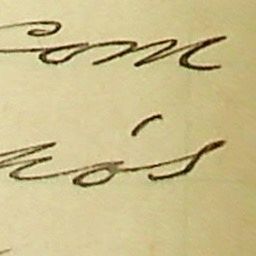 com
nós